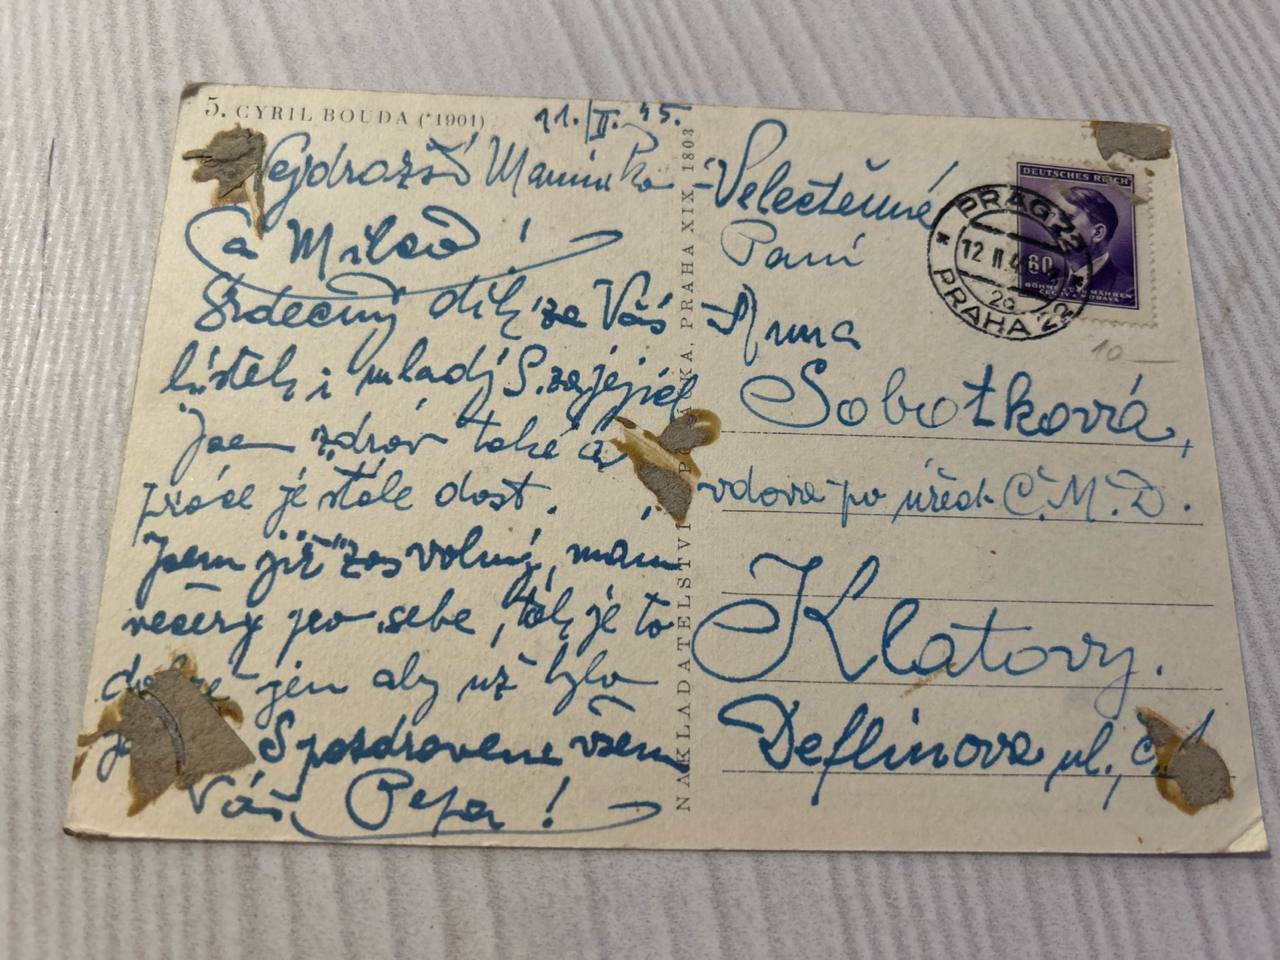 5. CYRIL BOUDA (*1901)
11./II. 45.
Nejdražší Maminko
a Milao !
Srdečný dík za Váš
lístek i mladý S. za jejich
Jsem zdráv také a
práce je stále dost.
Jsem již zas volný, mám
večery pro sebe, tak je to
jen aby už bylo
S pozdravem všem
Váš Pepa !
NAKLADATELSTVÍ PRAHA XIX, 1803
Velectěné
Paní
Anna
Sobotková,
vdova po úřed. Č.M.D.
Klatovy.
Deflinova ul., č.
DEUTSCHES REICH
60
BÖHMEN UND MÄHREN
ČECHY A MORAVA
PRAG 22
12 II.4
PRAHA 22
10